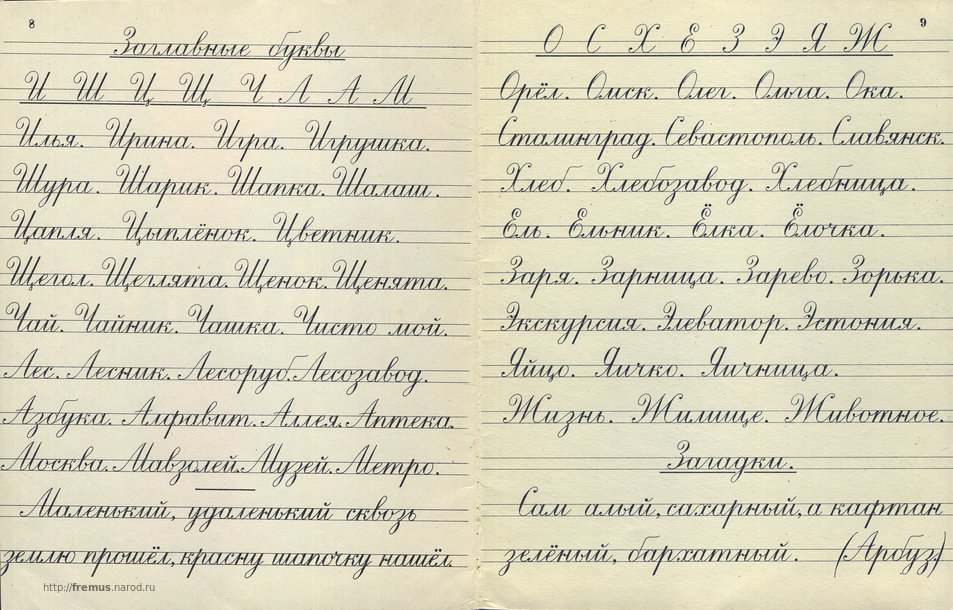 8
Заглавные буквы
И Ш Ц Щ Ч Л А М
Илья. Ирина. Игра. Игрушка.
Шура. Шарик. Шапка. Шалаш.
Цапля. Цыплёнок. Цветник.
Щегол. Щеглята. Щенок. Щенята.
Чай. Чайник. Чашка. Чисто мой.
Лес. Лесник. Лесоруб. Лесозавод.
Азбука. Алфавит. Аллея. Аптека.
Москва. Мавзолей. Музей. Метро.
Маленький, удаленький сквозь
землю прошёл, красну шапочку нашёл.
http://fremus.narod.ru
9
О С Х Е З Э Я Ж
Орёл. Омск. Олег. Ольга. Ока.
Сталинград. Севастополь. Славянск.
Хлеб. Хлебозавод. Хлебница.
Ель. Ельник. Ёлка. Ёлочка.
Заря. Зарница. Зарево. Зорька.
Экскурсия. Элеватор. Эстония.
Яйцо. Яичко. Яичница.
Жизнь. Жилище. Животное.
Загадки.
Сам алый, сахарный, а кафтан
зелёный, бархатный. (Арбуз)